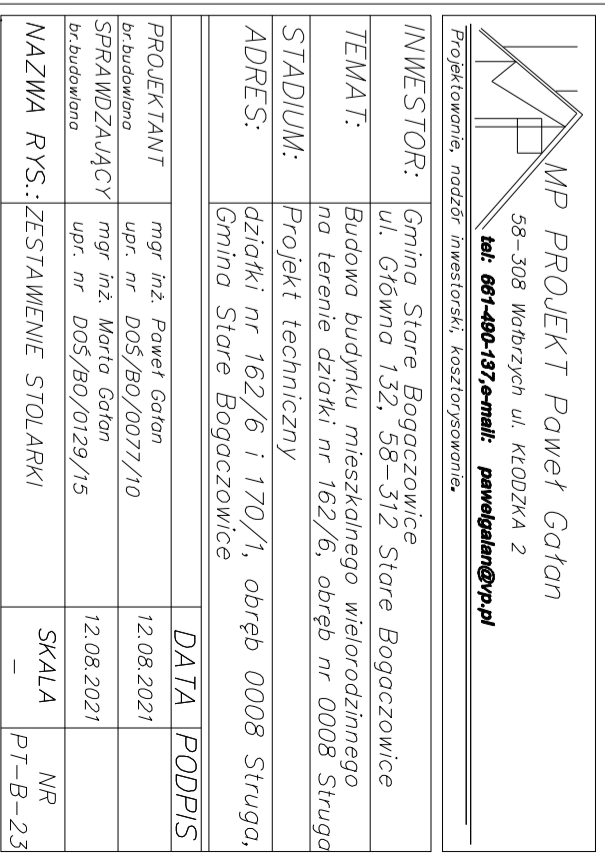 MP PROJEKT Paweł Gałan
58-308 Wałbrzych ul. KŁODZKA 2
tel: 661-490-137,e-mail: pawelgalan@vp.pl
Projektowanie, nadzór inwestorski, kosztorysowanie.
INWESTOR: Gmina Stare Bogaczowice
ul. Główna 132, 58-312 Stare Bogaczowice
TEMAT: Budowa budynku mieszkalnego wielorodzinnego
na terenie działki nr 162/6, obręb nr 0008 Struga
STADIUM: Projekt techniczny
ADRES: działki nr 162/6 i 170/1, obręb 0008 Struga,
Gmina Stare Bogaczowice
DATA PODPIS
PROJEKTANT mgr inż. Paweł Gałan 12.08.2021
br.budowlana upr. nr DOŚ/BO/0077/10
SPRAWDZAJĄCY mgr inż. Marta Gałan 12.08.2021
br.budowlana upr. nr DOŚ/BO/0129/15
NAZWA RYS.: ZESTAWIENIE STOLARKI SKALA NR
- PT-B-23